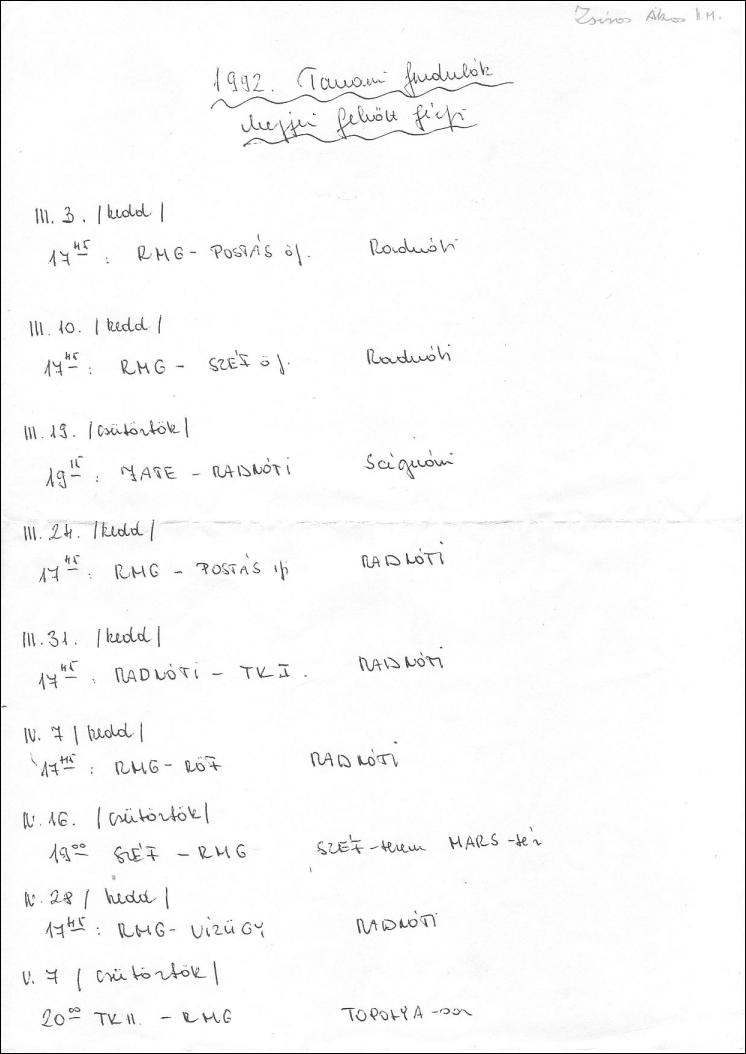 Zsíros Ákos II.M.
1992. Tavaszi fordulók
Megyei felnőtt férfi
III. 3. /kedd/
17 45 : RMG - POSTÁS öf. Radnóti
III. 10. /kedd/
17 45 : RMG - SZÉF öf. Radnóti
III. 19. /csütörtök/
19 15 : JATE - RADNÓTI Ságvári
III. 24. /kedd/
17 45 : RMG - POSTÁS ifi RADNÓTI
III. 31. /kedd/
17 45 : RADNÓTI - TK I. RADNÓTI
IV. 7 /kedd/
17 45 : RMG - RÖF RADNÓTI
IV. 16. /csütörtök/
19 00 SZÉF - RMG SZÉF-terem MARS-tér
IV. 28 /kedd/
17 45 : RMG - VIZÜGY RADNÓTI
V. 7 /csütörtök/
20 00 TK II. - RMG TOPOLYA-sor